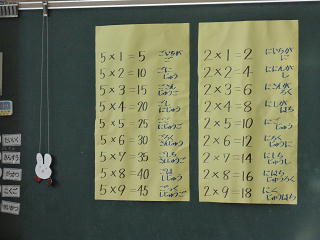 5×1=5 ごいちが ご
5×2=10 ごに じゅう
5×3=15 ごさん じゅうご
5×4=20 ごし にじゅう
5×5=25 ごご にじゅうご
5×6=30 ごろく さんじゅう
5×7=35 ごしち さんじゅうご
5×8=40 ごは しじゅう
5×9=45 ごっく しじゅうご
2×1=2 にいちが に
2×2=4 ににんが し
2×3=6 にさんが ろく
2×4=8 にしが はち
2×5=10 にご じゅう
2×6=12 にろく じゅうに
2×7=14 にしち じゅうし
2×8=16 にはち じゅうろく
2×9=18 にく じゅうはち
たいいく
さんすう
こくご